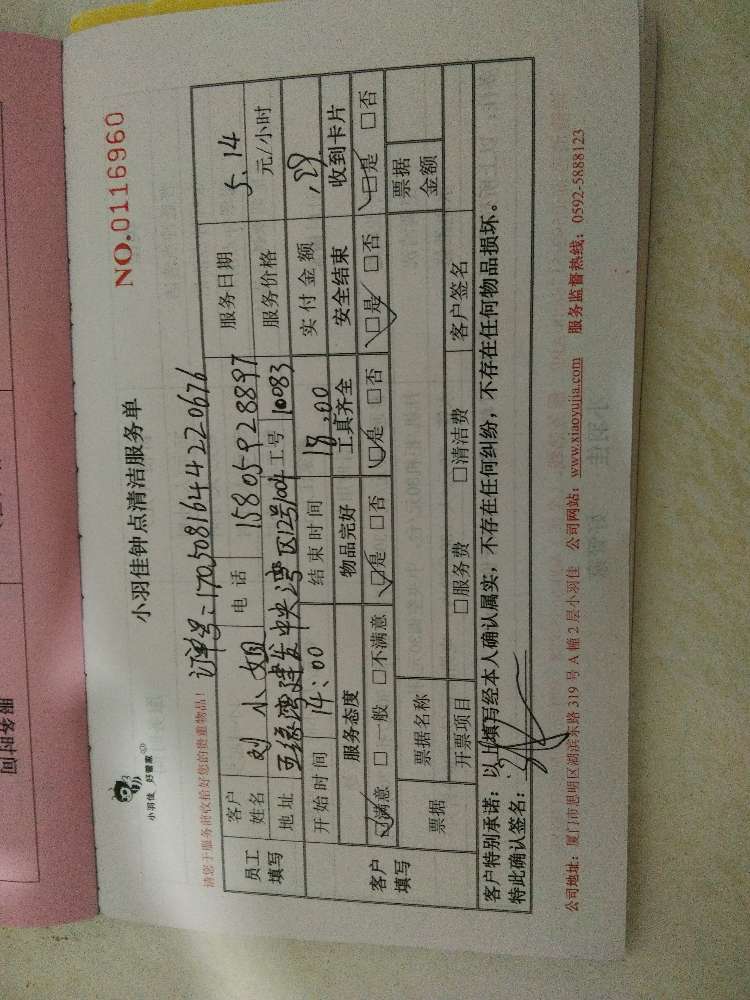 小羽佳 好管家
小羽佳钟点清洁服务单
NO.0116960
请您于服务前收拾好您的贵重物品！ 订单号：170508164422067б
员工填写
客户姓名 刘小姐 电话 15805928897 服务日期 5.14
地址 五缘湾建发中央湾区12号1004 工号 10083 服务价格 元/小时
开始时间 14：00 结束时间 18：00 实付金额
客户填写
服务态度 物品完好 工具齐全 安全结束 收到卡片
☑满意 □一般 □不满意 ☑是 □否 ☑是 □否 ☑是 □否 ☑是 □否
票据 票据名称 票据金额
开票项目 □服务费 □清洁费 客户签名
客户特别承诺：以上填写经本人确认属实，不存在任何纠纷，不存在任何物品损坏。
特此确认签名：
公司地址：厦门市思明区湖滨东路 319 号 A 幢 2 层小羽佳 公司网站：www.xiaoyujia.com 服务监督热线：0592-5888123
服务时间